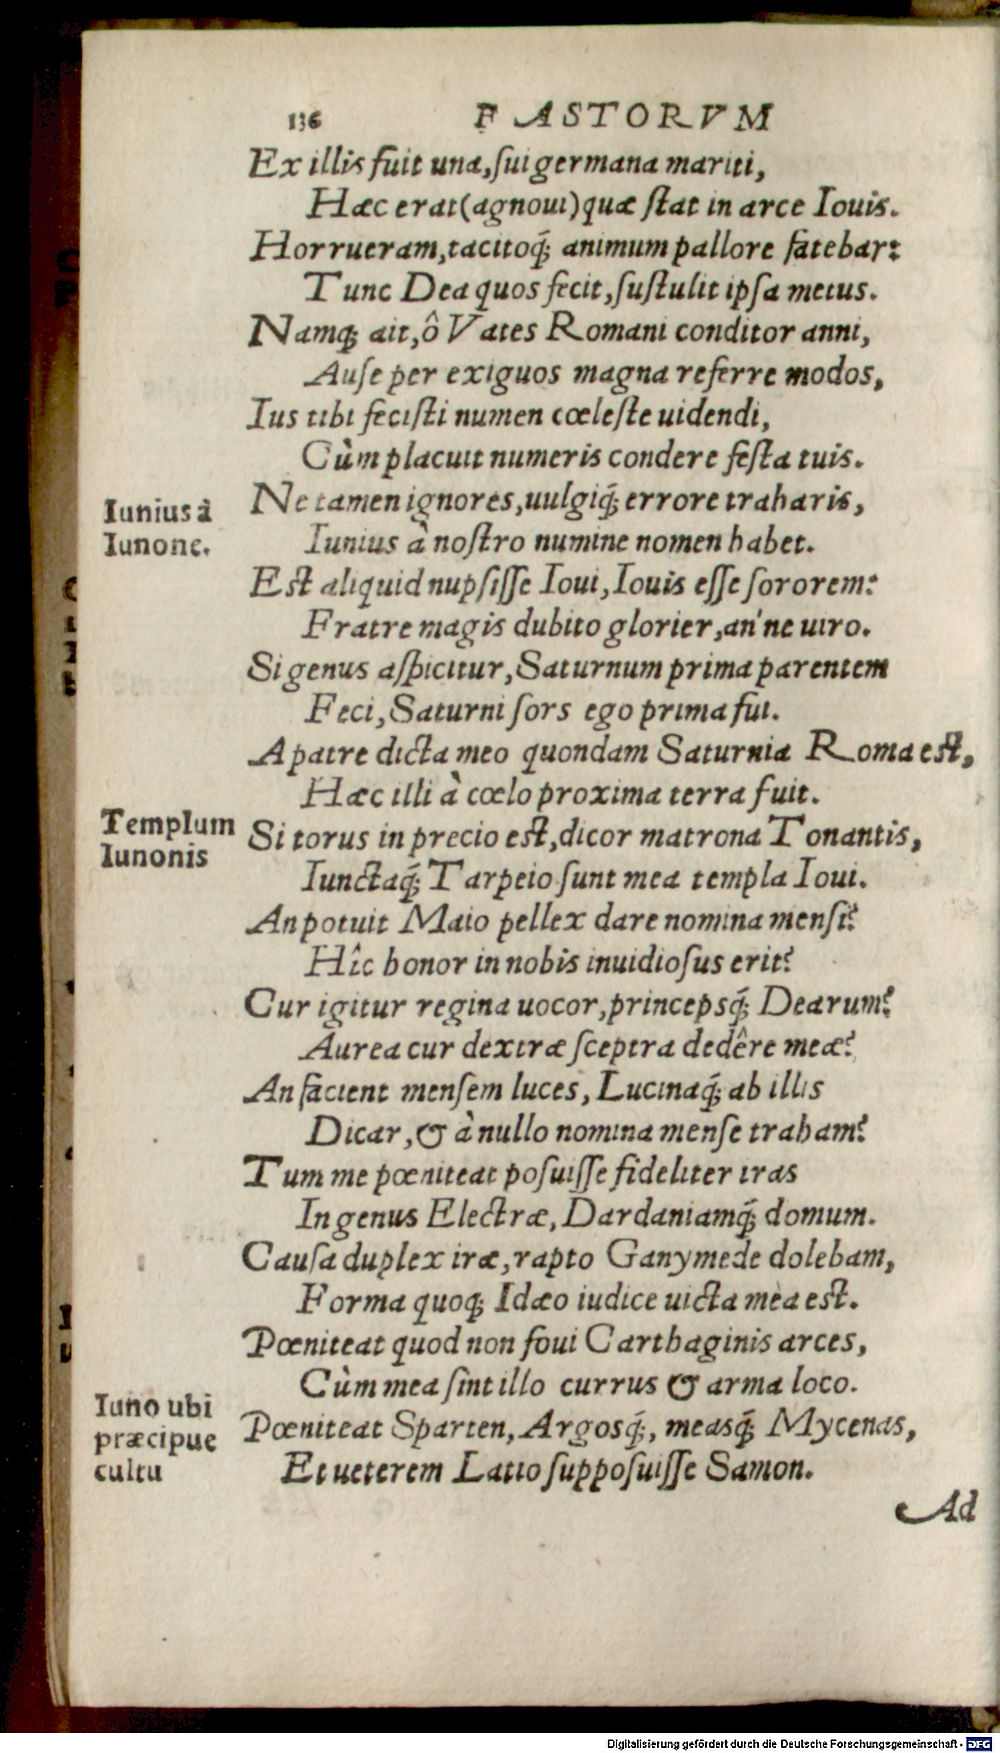 136 FASTORVM
Ex illis fuit una, sui germana mariti,
Hæc erat (agnoui) quæ stat in arce Iouis.
Horrueram, tacitoq́; animum pallore fatebar:
Tunc Dea quos fecit, sustulit ipsa metus.
Namq; ait, ô Vates Romani conditor anni,
Ause per exiguos magna referre modos,
Ius tibi fecisti numen cœleste uidendi,
Cùm placuit numeris condere festa tuis.
Iunius à
Iunone.
Ne tamen ignores, uulgiq́; errore traharis,
Iunius à nostro numine nomen habet.
Est aliquid nupsisse Ioui, Iouis esse sororem:
Fratre magis dubito glorier, an'ne uiro.
Si genus aspicitur, Saturnum prima parentem
Feci, Saturni sors ego prima fui.
A patre dicta meo quondam Saturnia Roma est,
Hæc illi à cœlo proxima terra fuit.
Templum
Iunonis
Si torus in precio est, dicor matrona Tonantis,
Iunctaq́; Tarpeio sunt mea templa Ioui.
An potuit Maio pellex dare nomina mensi?
Hîc honor in nobis inuidiosus erit?
Cur igitur regina uocor, princepsq́; Dearum?
Aurea cur dextræ sceptra dedêre meæ?
An facient mensem luces, Lucinaq́; ab illis
Dicar, & à nullo nomina mense traham?
Tum me pœniteat posuisse fideliter iras
In genus Electræ, Dardaniamq́; domum.
Causa duplex iræ, rapto Ganymede dolebam,
Forma quoq; Idæo iudice uicta mea est.
Pœniteat quod non foui Carthaginis arces,
Cùm mea sint illo currus & arma loco.
Iuno ubi
præcipue
cultu
Pœniteat Sparten, Argosq́;, measq́; Mycenas,
Et ueterem Latio supposuisse Samon.
Ad
Digitalisierung gefördert durch die Deutsche Forschungsgemeinschaft - DFG